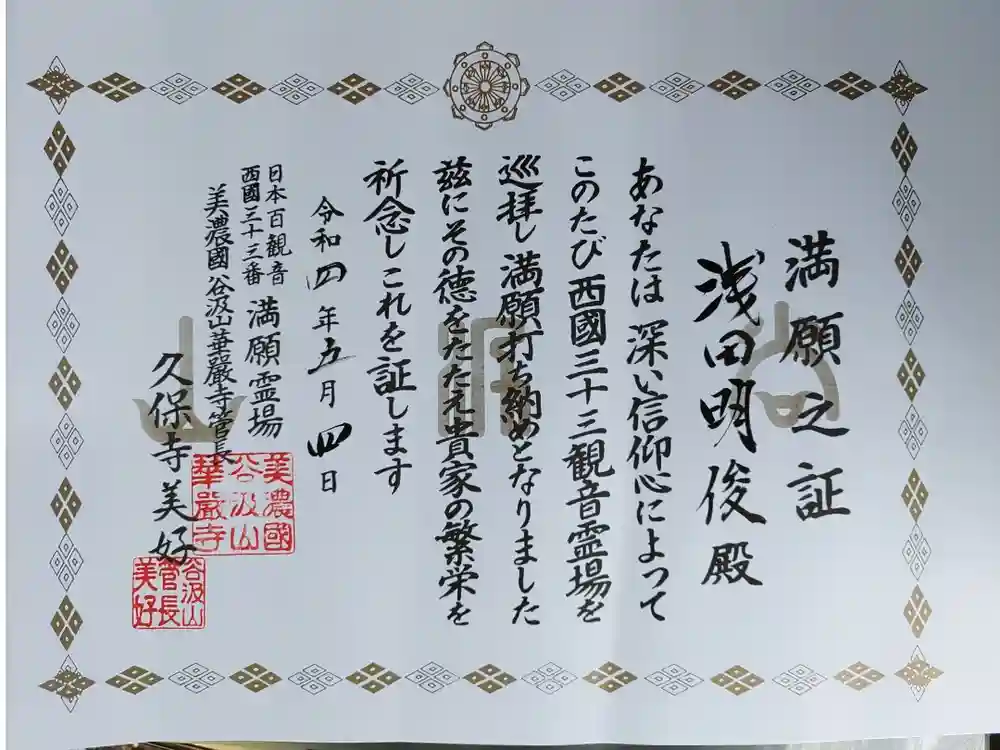 満願之証
浅田明俊殿
あなたは深い信仰心によって
このたび西國三十三観音霊場を
巡拝し満願打ち納めとなりました
茲にその徳をたたえ貴家の繁栄を
祈念しこれを証します
令和四年五月四日
日本百観音
西國三十三番
満願霊場
美濃國谷汲山華厳寺管長
久保寺美好
美濃國
谷汲山
華厳寺
谷汲山
管長
美好
谷汲山